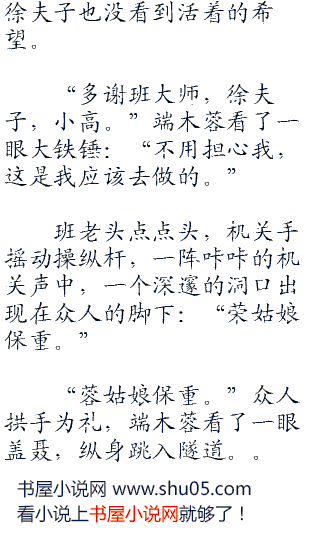 徐夫子也没看到活着的希
望。
“多谢班大师，徐夫
子，小高。”端木蓉看了一
眼大铁锤：“不用担心我，
这是我应该去做的。”
班老头点点头，机关手
摇动操纵杆，一阵咔咔的机
关声中，一个深邃的洞口出
现在众人的脚下：“荣姑娘
保重。”
“蓉姑娘保重。”众人
拱手为礼，端木蓉看了一眼
盖聂，纵身跳入隧道。。
书屋小说网 www.shu05.com
看小说上书屋小说网就够了！